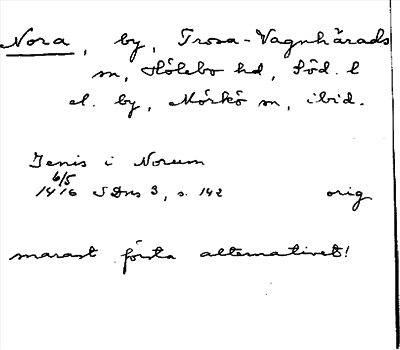 Nora, by, Trosa-Vagnhärads
sn, Hölebo hd, Söd. l
el. by, Mörkö sn, ibid.
Jenis i Norum
6/5
1416 SDns 3, s. 142 orig
snarast första alternativet!